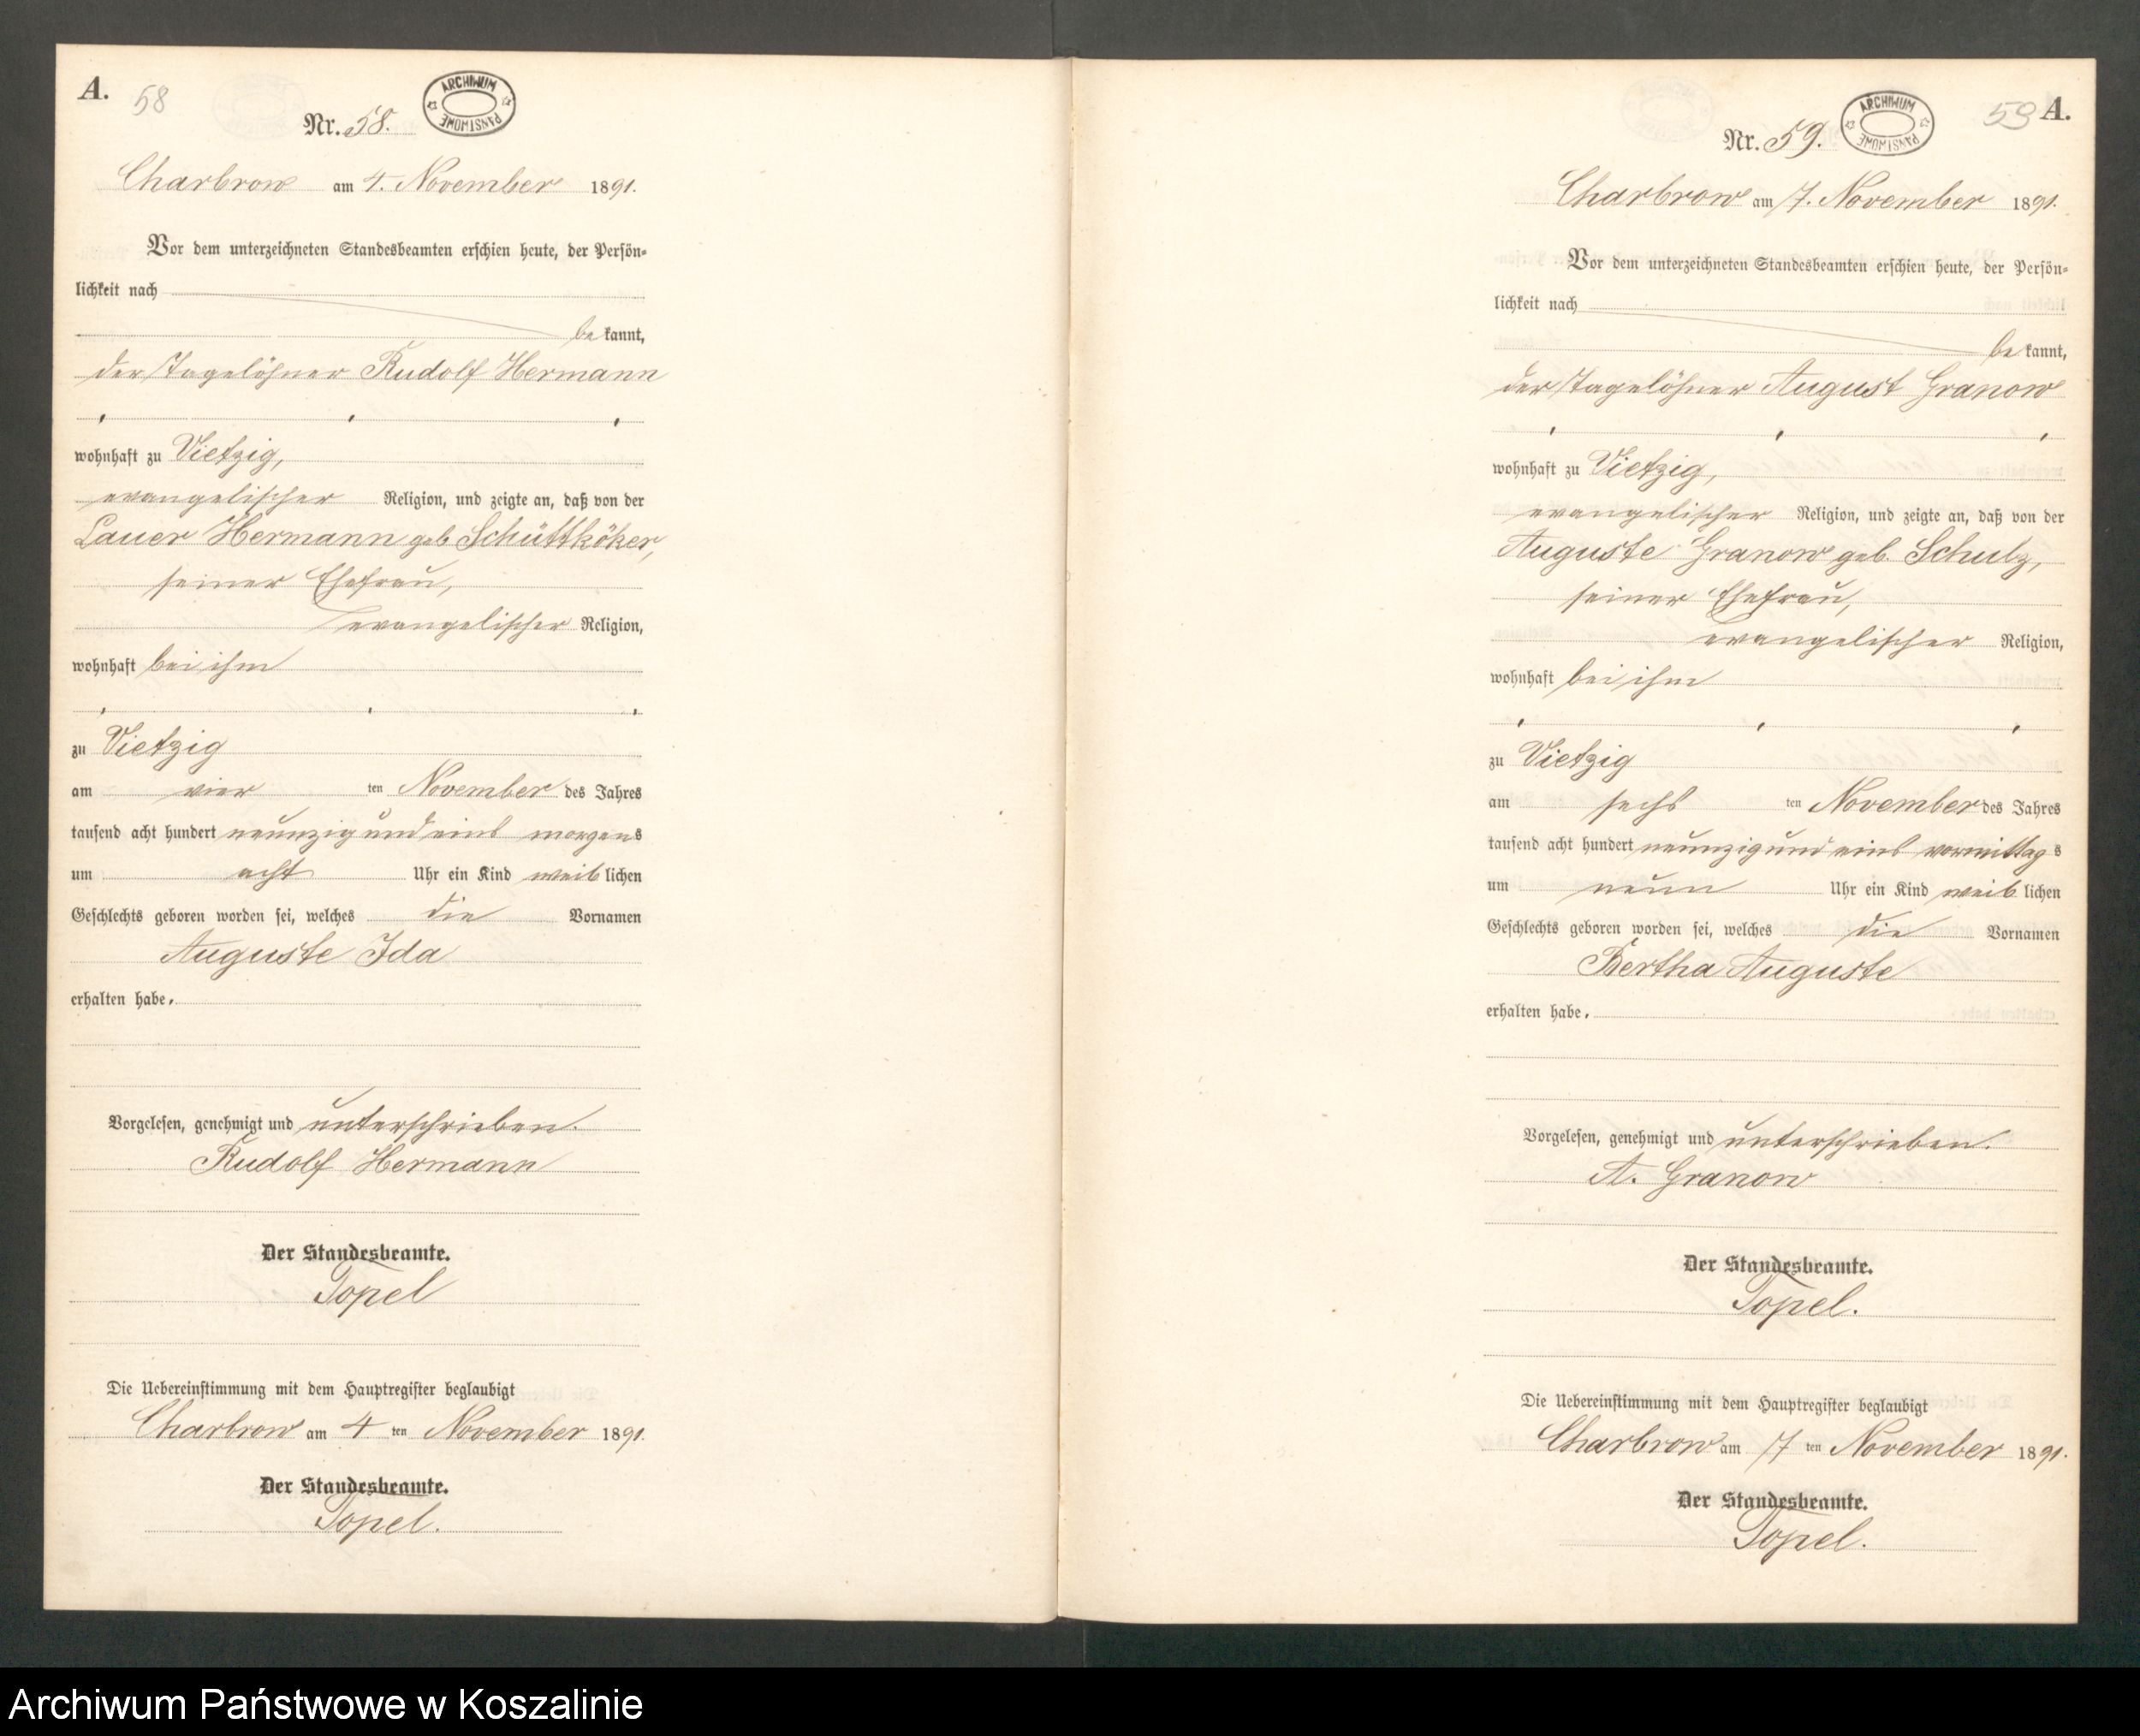 A.
58
Nr. 58.
ARCHIWUM PAŃSTWOWE
Charbrow am 4. November 1891.
Vor dem unterzeichneten Standesbeamten erschien heute, der Persön-
lichkeit nach
bekannt,
der Tagelöhner Rudolf Hermann
wohnhaft zu Vietzig,
evangelischer Religion, und zeigte an, daß von der
Lauer Hermann geb Schüttköker,
seiner Ehefrau,
evangelischer Religion,
wohnhaft bei ihm
zu Vietzig
am vier ten November des Jahres
tausend acht hundert neunzig und eins morgens
um acht Uhr ein Kind weiblichen
Geschlechts geboren worden sei, welches die Vornamen
Auguste Ida
erhalten habe.
Vorgelesen, genehmigt und unterschrieben.
Rudolf Hermann
Der Standesbeamte.
Topel
Die Uebereinstimmung mit dem Hauptregister beglaubigt
Charbrow am 4 ten November 1891.
Der Standesbeamte.
Topel.
59 A.
Nr. 59.
ARCHIWUM PAŃSTWOWE
Charbrow am 7. November 1891.
Vor dem unterzeichneten Standesbeamten erschien heute, der Persön-
lichkeit nach
bekannt,
der Tagelöhner August Granow
wohnhaft zu Vietzig,
evangelischer Religion, und zeigte an, daß von der
Auguste Granow geb. Schulz,
seiner Ehefrau,
evangelischer Religion,
wohnhaft bei ihm
zu Vietzig
am sechs ten November des Jahres
tausend acht hundert neunzig und eins vormittags
um neun Uhr ein Kind weiblichen
Geschlechts geboren worden sei, welches die Vornamen
Bertha Auguste
erhalten habe.
Vorgelesen, genehmigt und unterschrieben.
A. Granow
Der Standesbeamte.
Topel.
Die Uebereinstimmung mit dem Hauptregister beglaubigt
Charbrow am 7 ten November 1891.
Der Standesbeamte.
Topel.
Archiwum Państwowe w Koszalinie